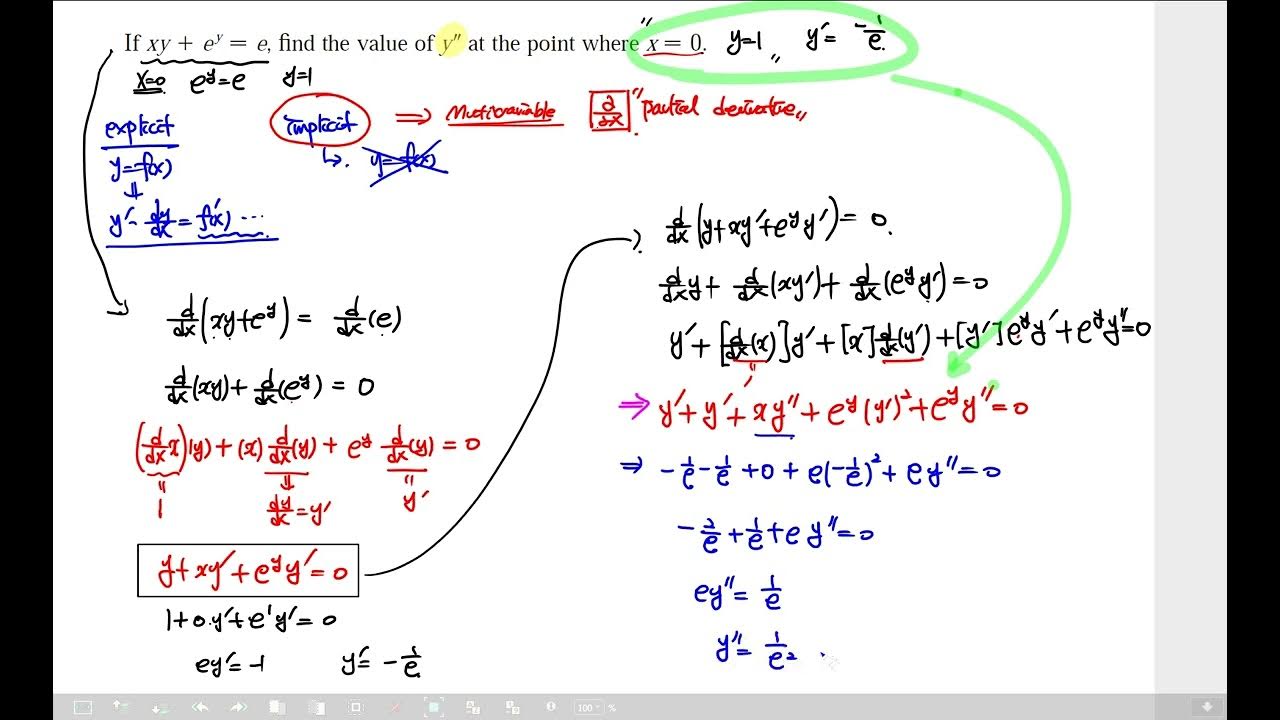 If xy + eʸ = e, find the value of y″ at the point where "x = 0. y=1 „ y′= -1/e.
x=0 eʸ=e y=1
explicit
y=f(x)
⇓
y′- dy/dx = f′(x) ...
implicit ⇒ Multivariable ∂/∂x "partial derivative„
↳. y=f(x)
d/dx(xy+eʸ) = d/dx(e)
d/dx(xy)+ d/dx(eʸ) = 0
(d/dx x)(y)+(x) d/dx(y) + eʸ d/dx(y) = 0
"
1
⇓
dy/dx = y′
"
y′
y+xy′+eʸy′=0
1+0.y′+e¹y′=0
ey′=-1 y′= -1/e
d/dx(y+xy′+eʸy′)= 0.
d/dx y+ d/dx(xy′)+ d/dx(eʸy′)=0
y′+[d/dx(x)]y′+[x]d/dx(y′)+[y′]eʸy′+eʸy″=0
"
1
⇒ y′+y′+xy″+eʸ(y′)²+eʸy″=0
⇒ -1/e-1/e+0+e(-1/e)²+ey″=0
-2/e+1/e+ey″=0
ey″=1/e
y″=1/e²
100 %